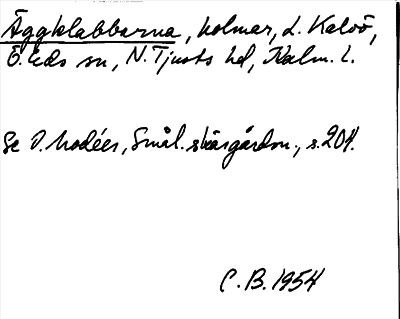 Äggklabbarna, holmar, L. Kalvö,
Ö. Eds sn, N. Tjusts hd, Kalm. l.
Se O. Modéer, Smål. skärgårdsn., s. 204.
C. B. 1954